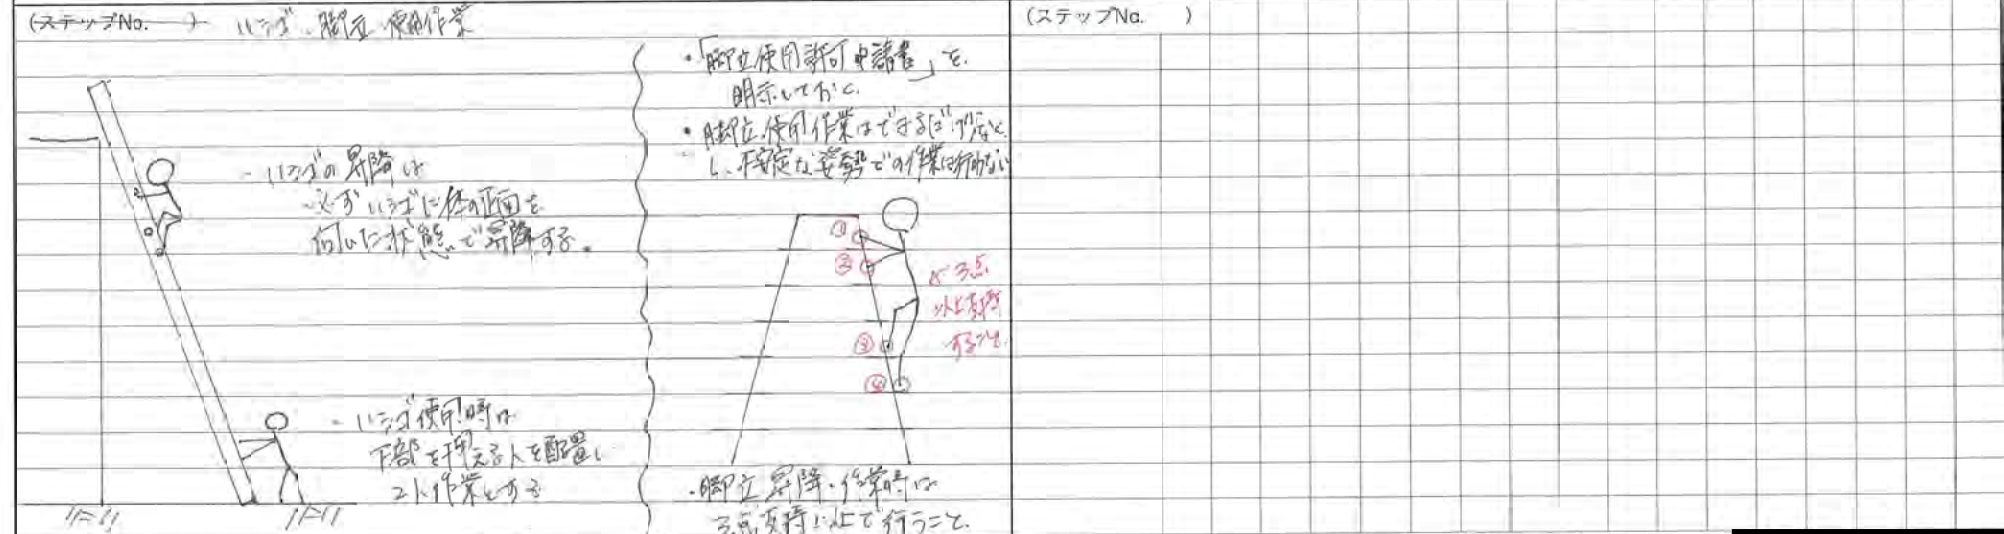 (ステップNo.　　) ハシゴ、脚立、使用作業
・ハシゴの昇降は
必ずハシゴに体の正面を
向いた状態で昇降する。
・ハシゴ使用時は
下部を押える人を配置し
2人作業とする
・「脚立使用許可申請書」を
明示しておく
・脚立使用作業はできるだけ少なく
し、不安定な姿勢での作業は行わない
①
②
③
④
3点
以上支持
すること
・脚立昇降・作業時は
3点支持以上で行うこと
(ステップNo.　　)